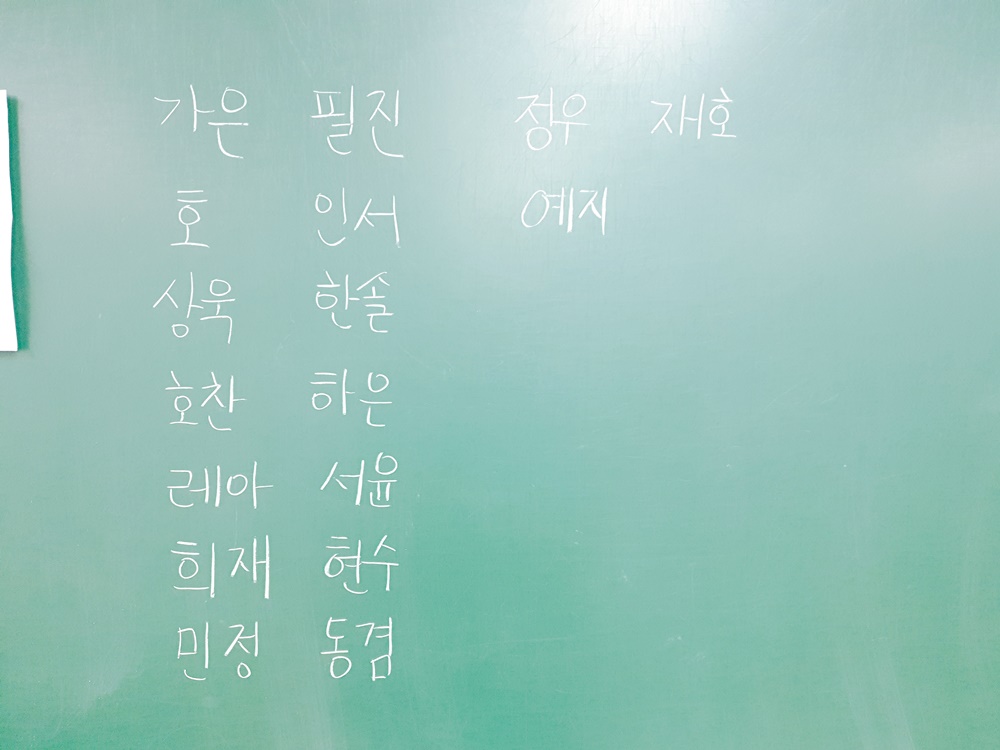 가은 필진 정우 재호
호 인서 예지
상욱 한솔
호찬 하은
레아 서윤
희재 현수
민정 동겸